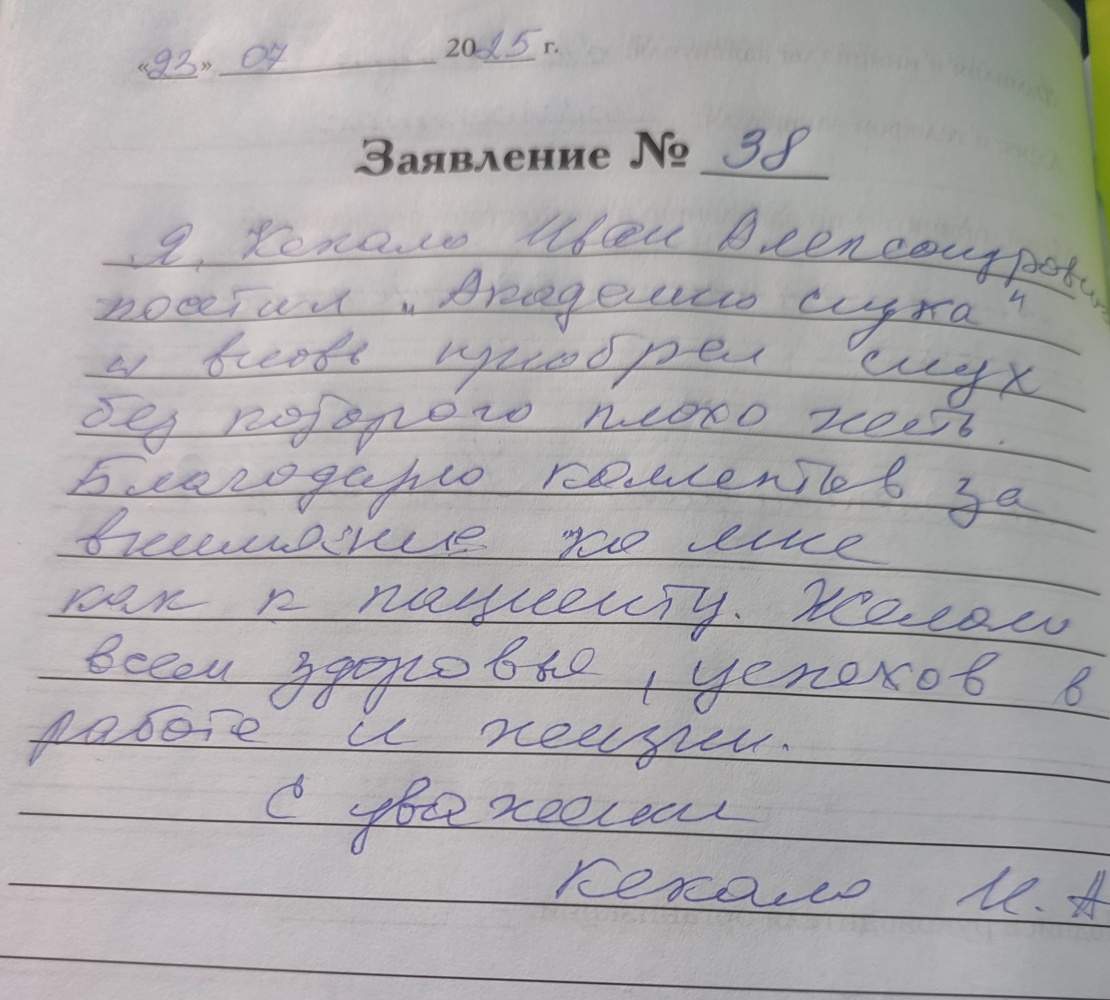 «23» 07 2025 г.
Заявление № 38
Я, Кекало Иван Александрович
посетил "Академию слуха"
и вновь приобрел слух
без которого плохо жить.
Благодарю коллектив за
внимание ко мне
как к пациенту. Желаю
всем здоровья, успехов в
работе и жизни.
С уважением
Кекало И. А